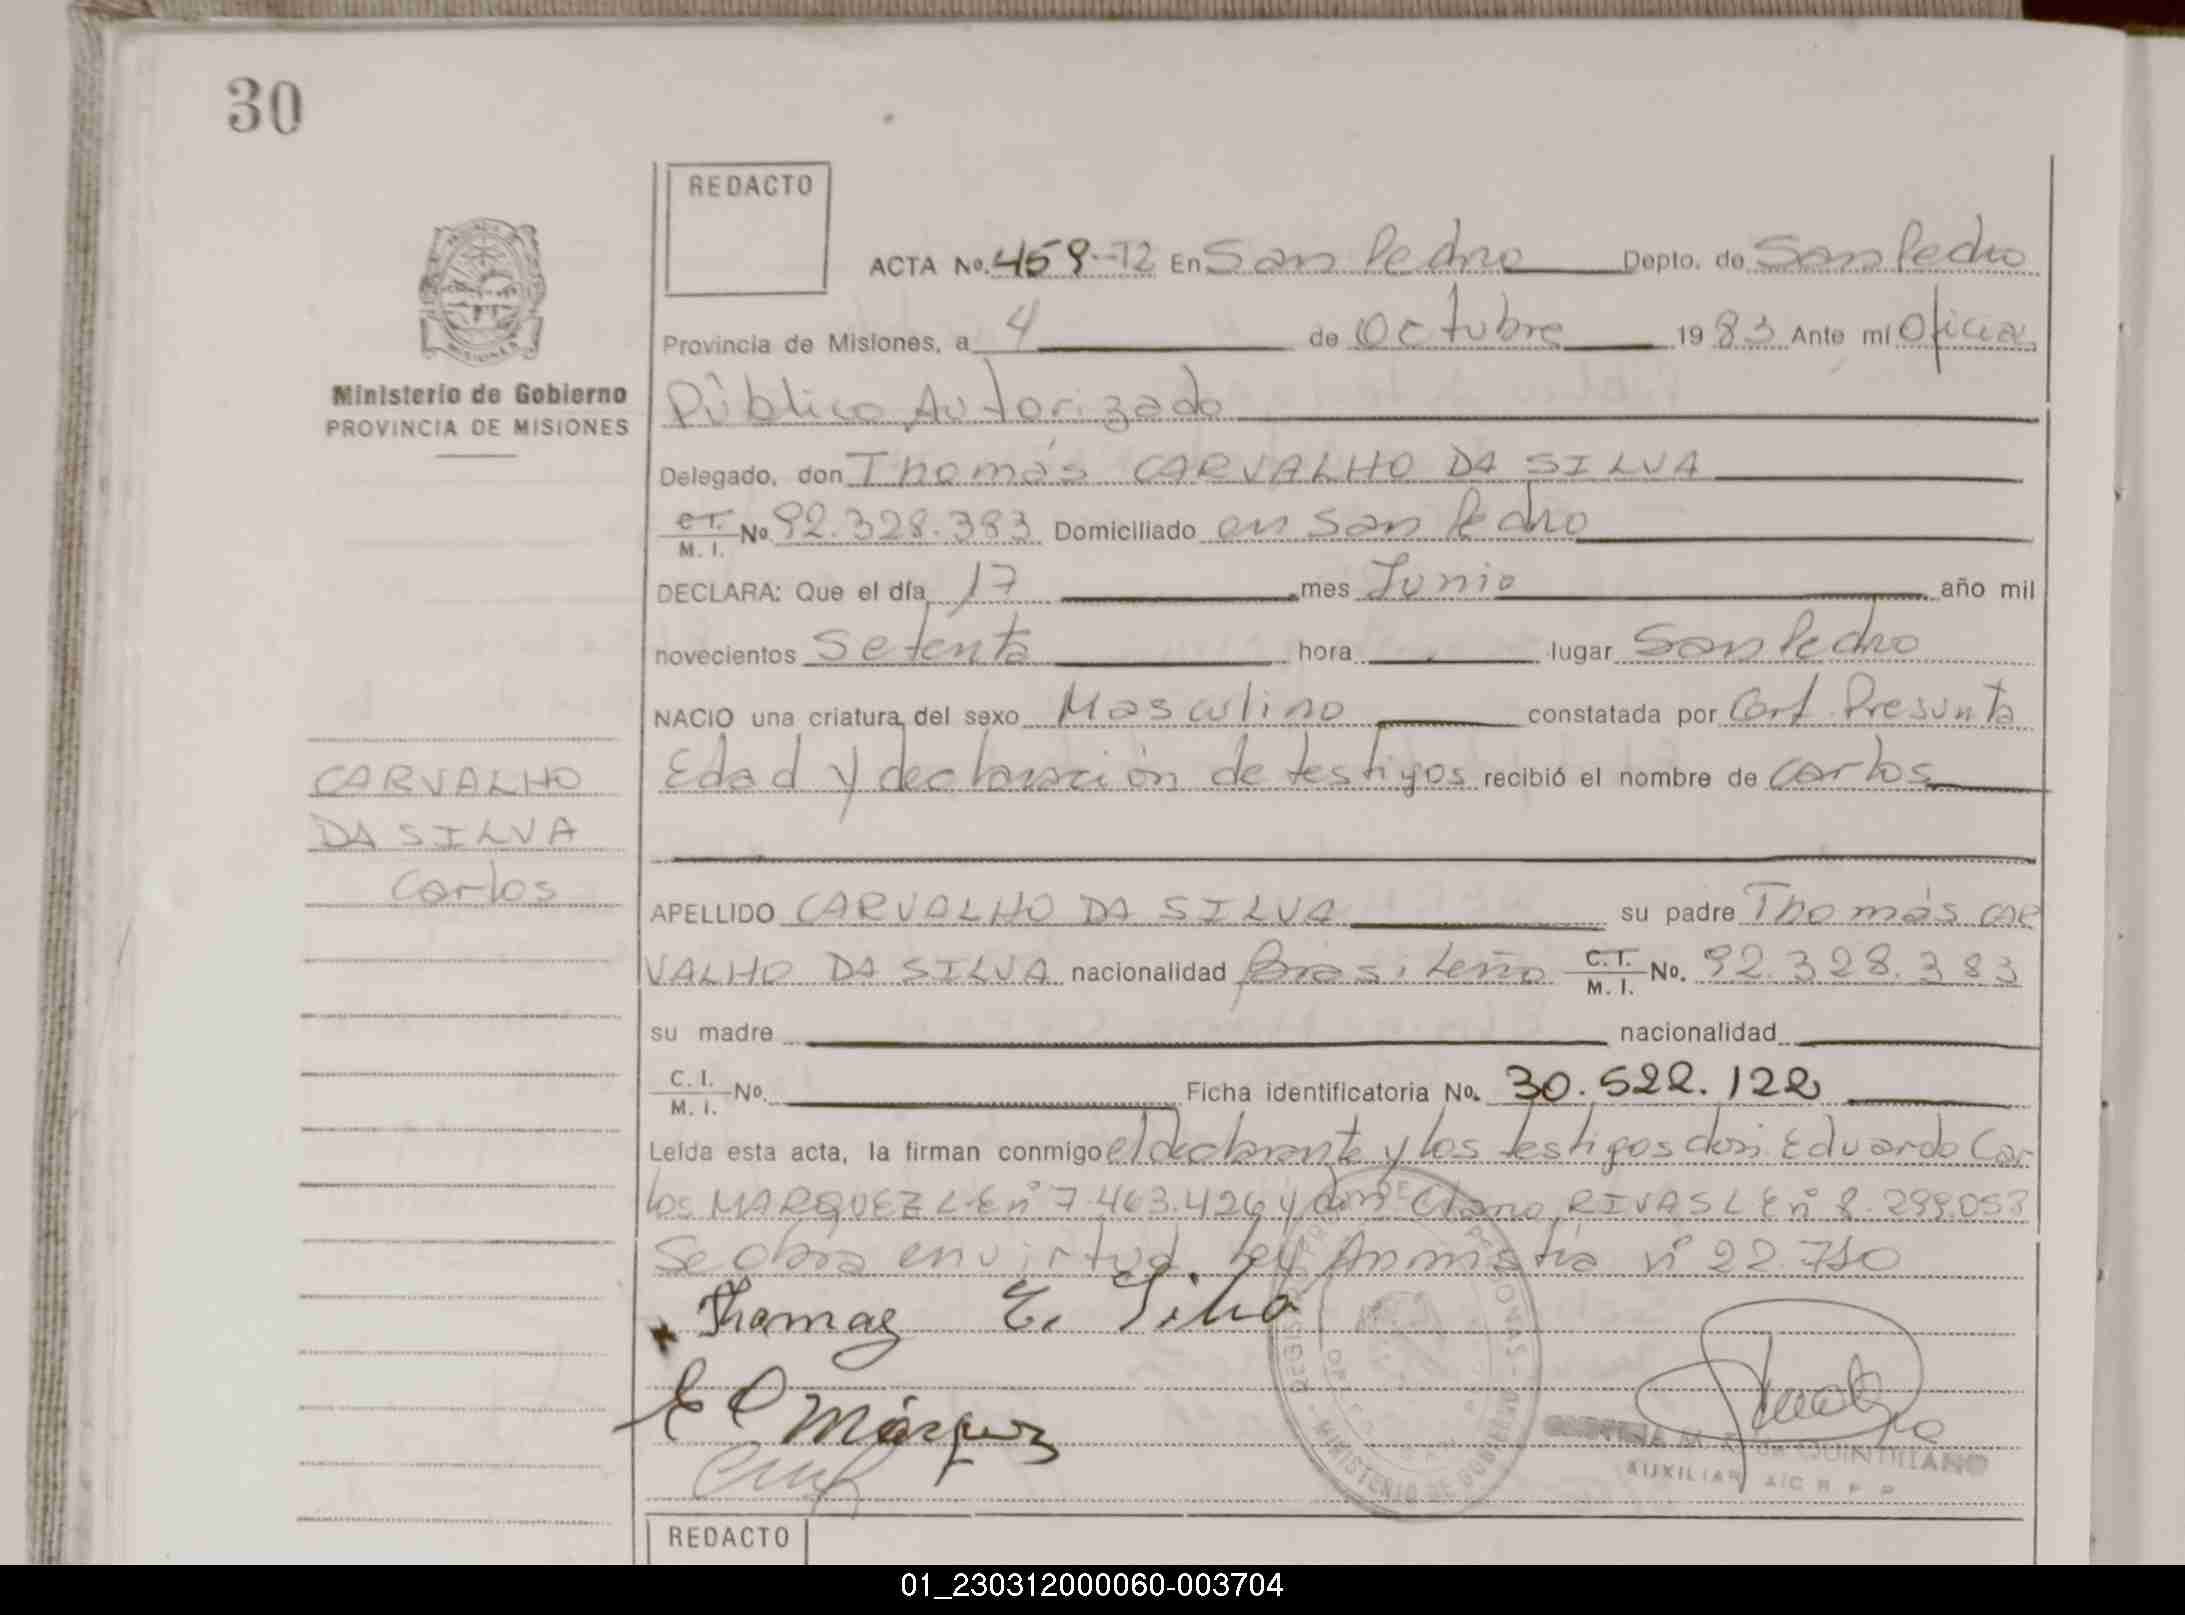 30
REDACTO
ACTA No. 459-T2 En San Pedro Depto. de San Pedro
Provincia de Misiones, a 4 de Octubre 1983 Ante mi Oficial
Público Autorizado
Delegado, don Thomás CARVALHO DA SILVA
C.I.
M. I. No 92.328.383 Domiciliado en San Pedro
DECLARA: Que el día 17 mes Junio año mil
novecientos Setenta hora lugar San Pedro
NACIO una criatura del sexo Masculino constatada por Cert. Presunta
Edad y declaración de testigos recibió el nombre de Carlos
Ministerio de Gobierno
PROVINCIA DE MISIONES
CARVALHO
DA SILVA
Carlos
APELLIDO CARVALHO DA SILVA su padre Thomás CAR
VALHO DA SILVA nacionalidad Brasileño C.I.
M. I. No. 92.328.383
su madre nacionalidad
C. I.
M. I. No. Ficha identificatoria No. 30.522.122
Leída esta acta, la firman conmigo el declarante y los testigos don Eduardo Car
los MARQUEZ LE nº 7.463.426 y don RIVAS LE nº 8.299.053
Se obra en virtud ley Amnistía nº 22.710
Thomaz C. Silva
E C Márquez
MINISTERIO DE GOBIERNO
QUINTILIANO
AUXILIAR
REDACTO
01_230312000060-003704